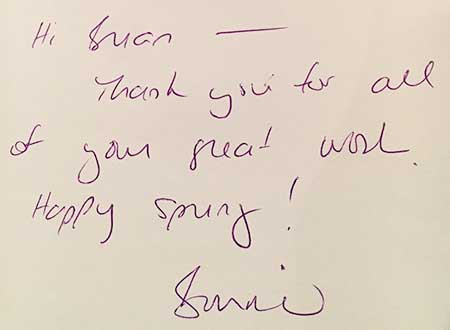 Hi —
Thank you for all
of your great work.
Happy Spring!